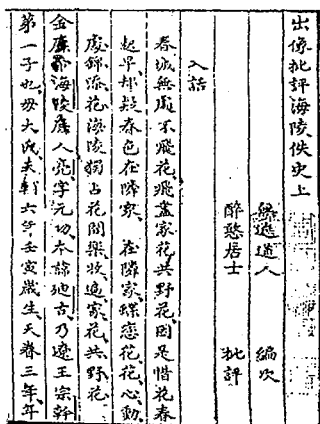 出像批評海陵佚史上
無遮道人　編次
醉憨居士　批評
入話
春城無處不飛花飛盡家花共野花因是惜花春
起早却疑春色在隣家　在隣家蝶戀花花心動
處錦添花海陵獨占花閒樂收盡家花共野花
金廢帝海陵庶人亮字元功本諱迪古乃遼王宗幹
第二子也母大氏天輔六年壬寅歲生天眷三年年